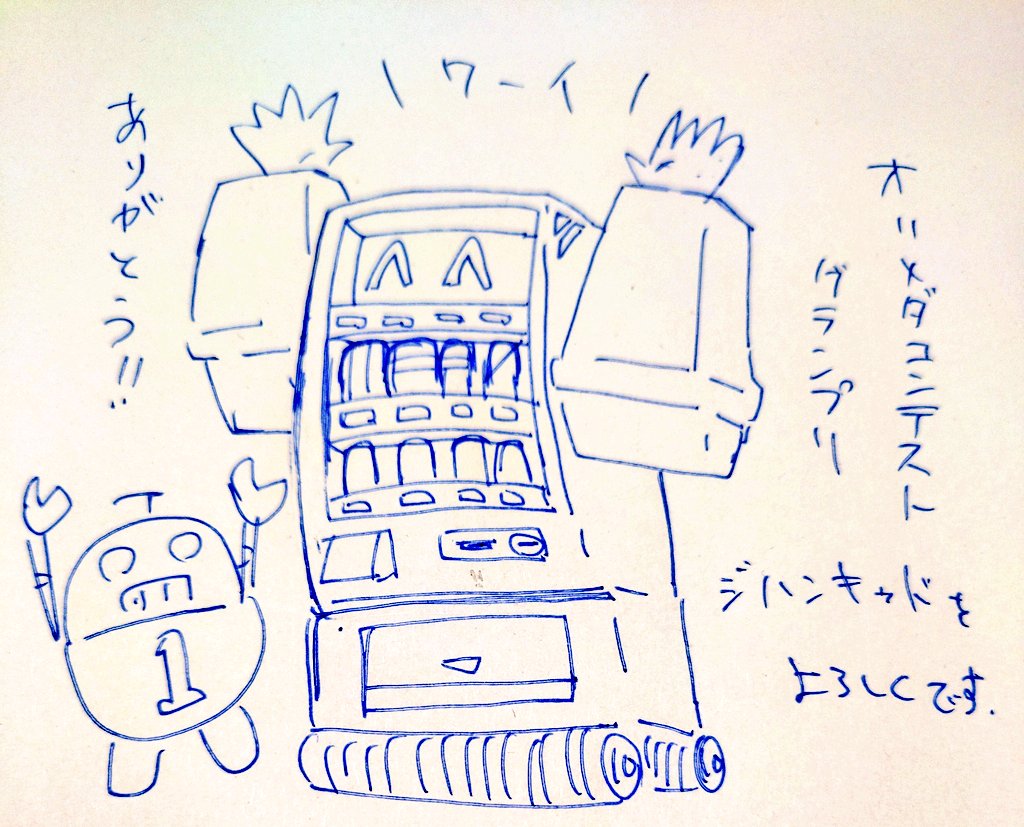 \ワーイ/
オリメダコンテスト
グランプリ
ありがとう!!
ジハンキッドを
よろしくです.
1